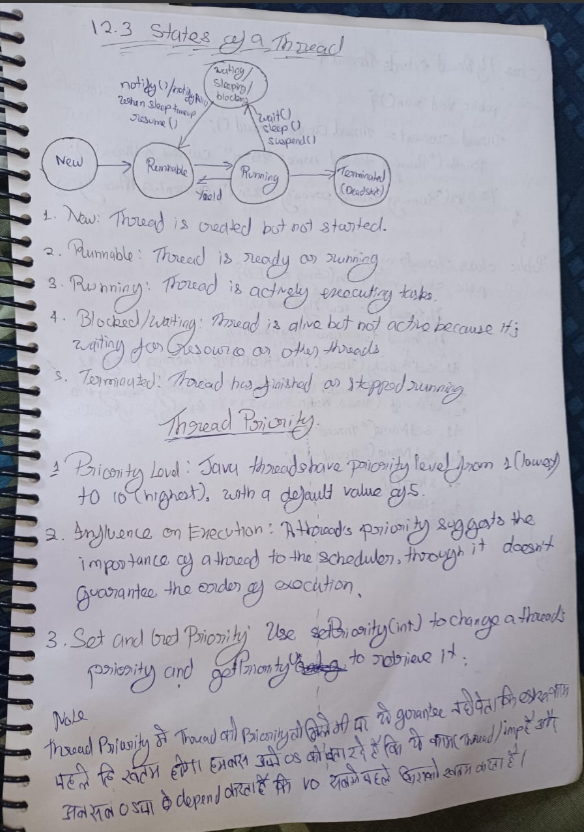 12.3 States of a Thread
waiting/
sleeping/
blocking
notify()/notifyAll
when sleep time up
resume()
wait()
sleep()
suspend()
New
Runnable
Running
Terminated
(Dead state)
Yield
1. New: Thread is created but not started.
2. Runnable: Thread is ready or running
3. Running: Thread is actively executing tasks.
4. Blocked/Waiting: Thread is alive but not active because it's
waiting for resource or other threads
5. Terminated: Thread has finished or stopped running
Thread Priority
1 Priority Level: Java threads have priority level from 1 (lowest)
to 10 (highest), with a default value of 5.
2. Influence on Execution: A thread's priority suggests the
importance of a thread to the scheduler, through it doesn't
guarantee the order of execution.
3. Set and Get Priority: Use setPriority(int) to change a thread's
priority and getPriority() to retrieve it.
Note
Thread Priority में Thread को Priority तो मिलेगी पर ये guarantee नहीं देता कि
पहले ही खत्म होगा। हम बस अपने OS को बता रहे हैं कि ये काम thread/imp है और
OS पे depend करता है कि वो सबसे पहले किसको खत्म करता है।